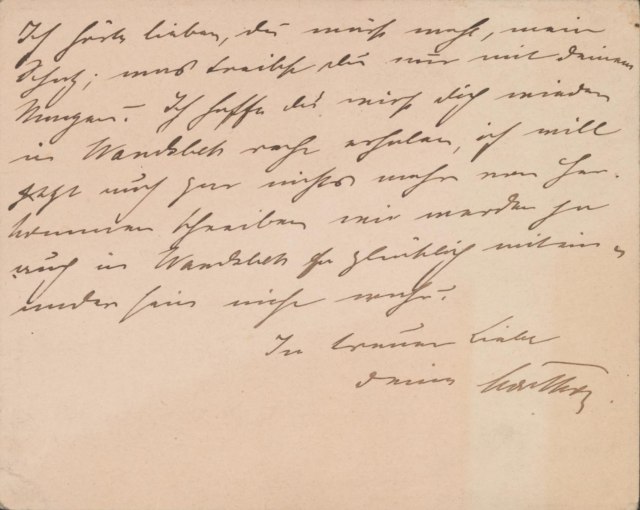 Ich hörte lieber, du wärst wohl, mein
Schatz; was treibst du nur mit deinem
Magen? Ich hoffe du wirst dich wieder
in Wandsbek recht erholen, ich will
jetzt auch gar nichts mehr von her-
kommen schreiben wir werden ja
auch in Wandsbek so glücklich mitein-
ander sein nicht wahr?
In treuer Liebe
deine Martha